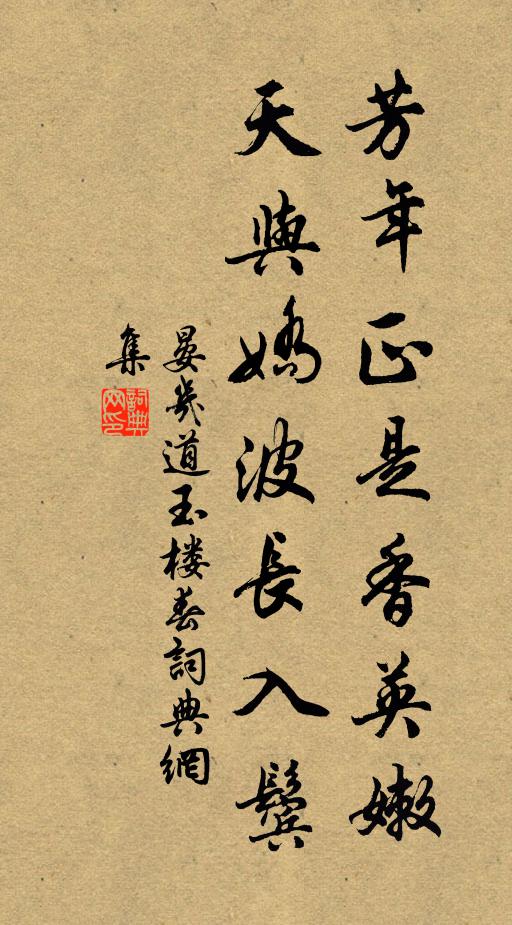 芳年正是香英嫩
天與嬌波長入鬢
晏幾道玉樓春詞典網
集
詞典網印